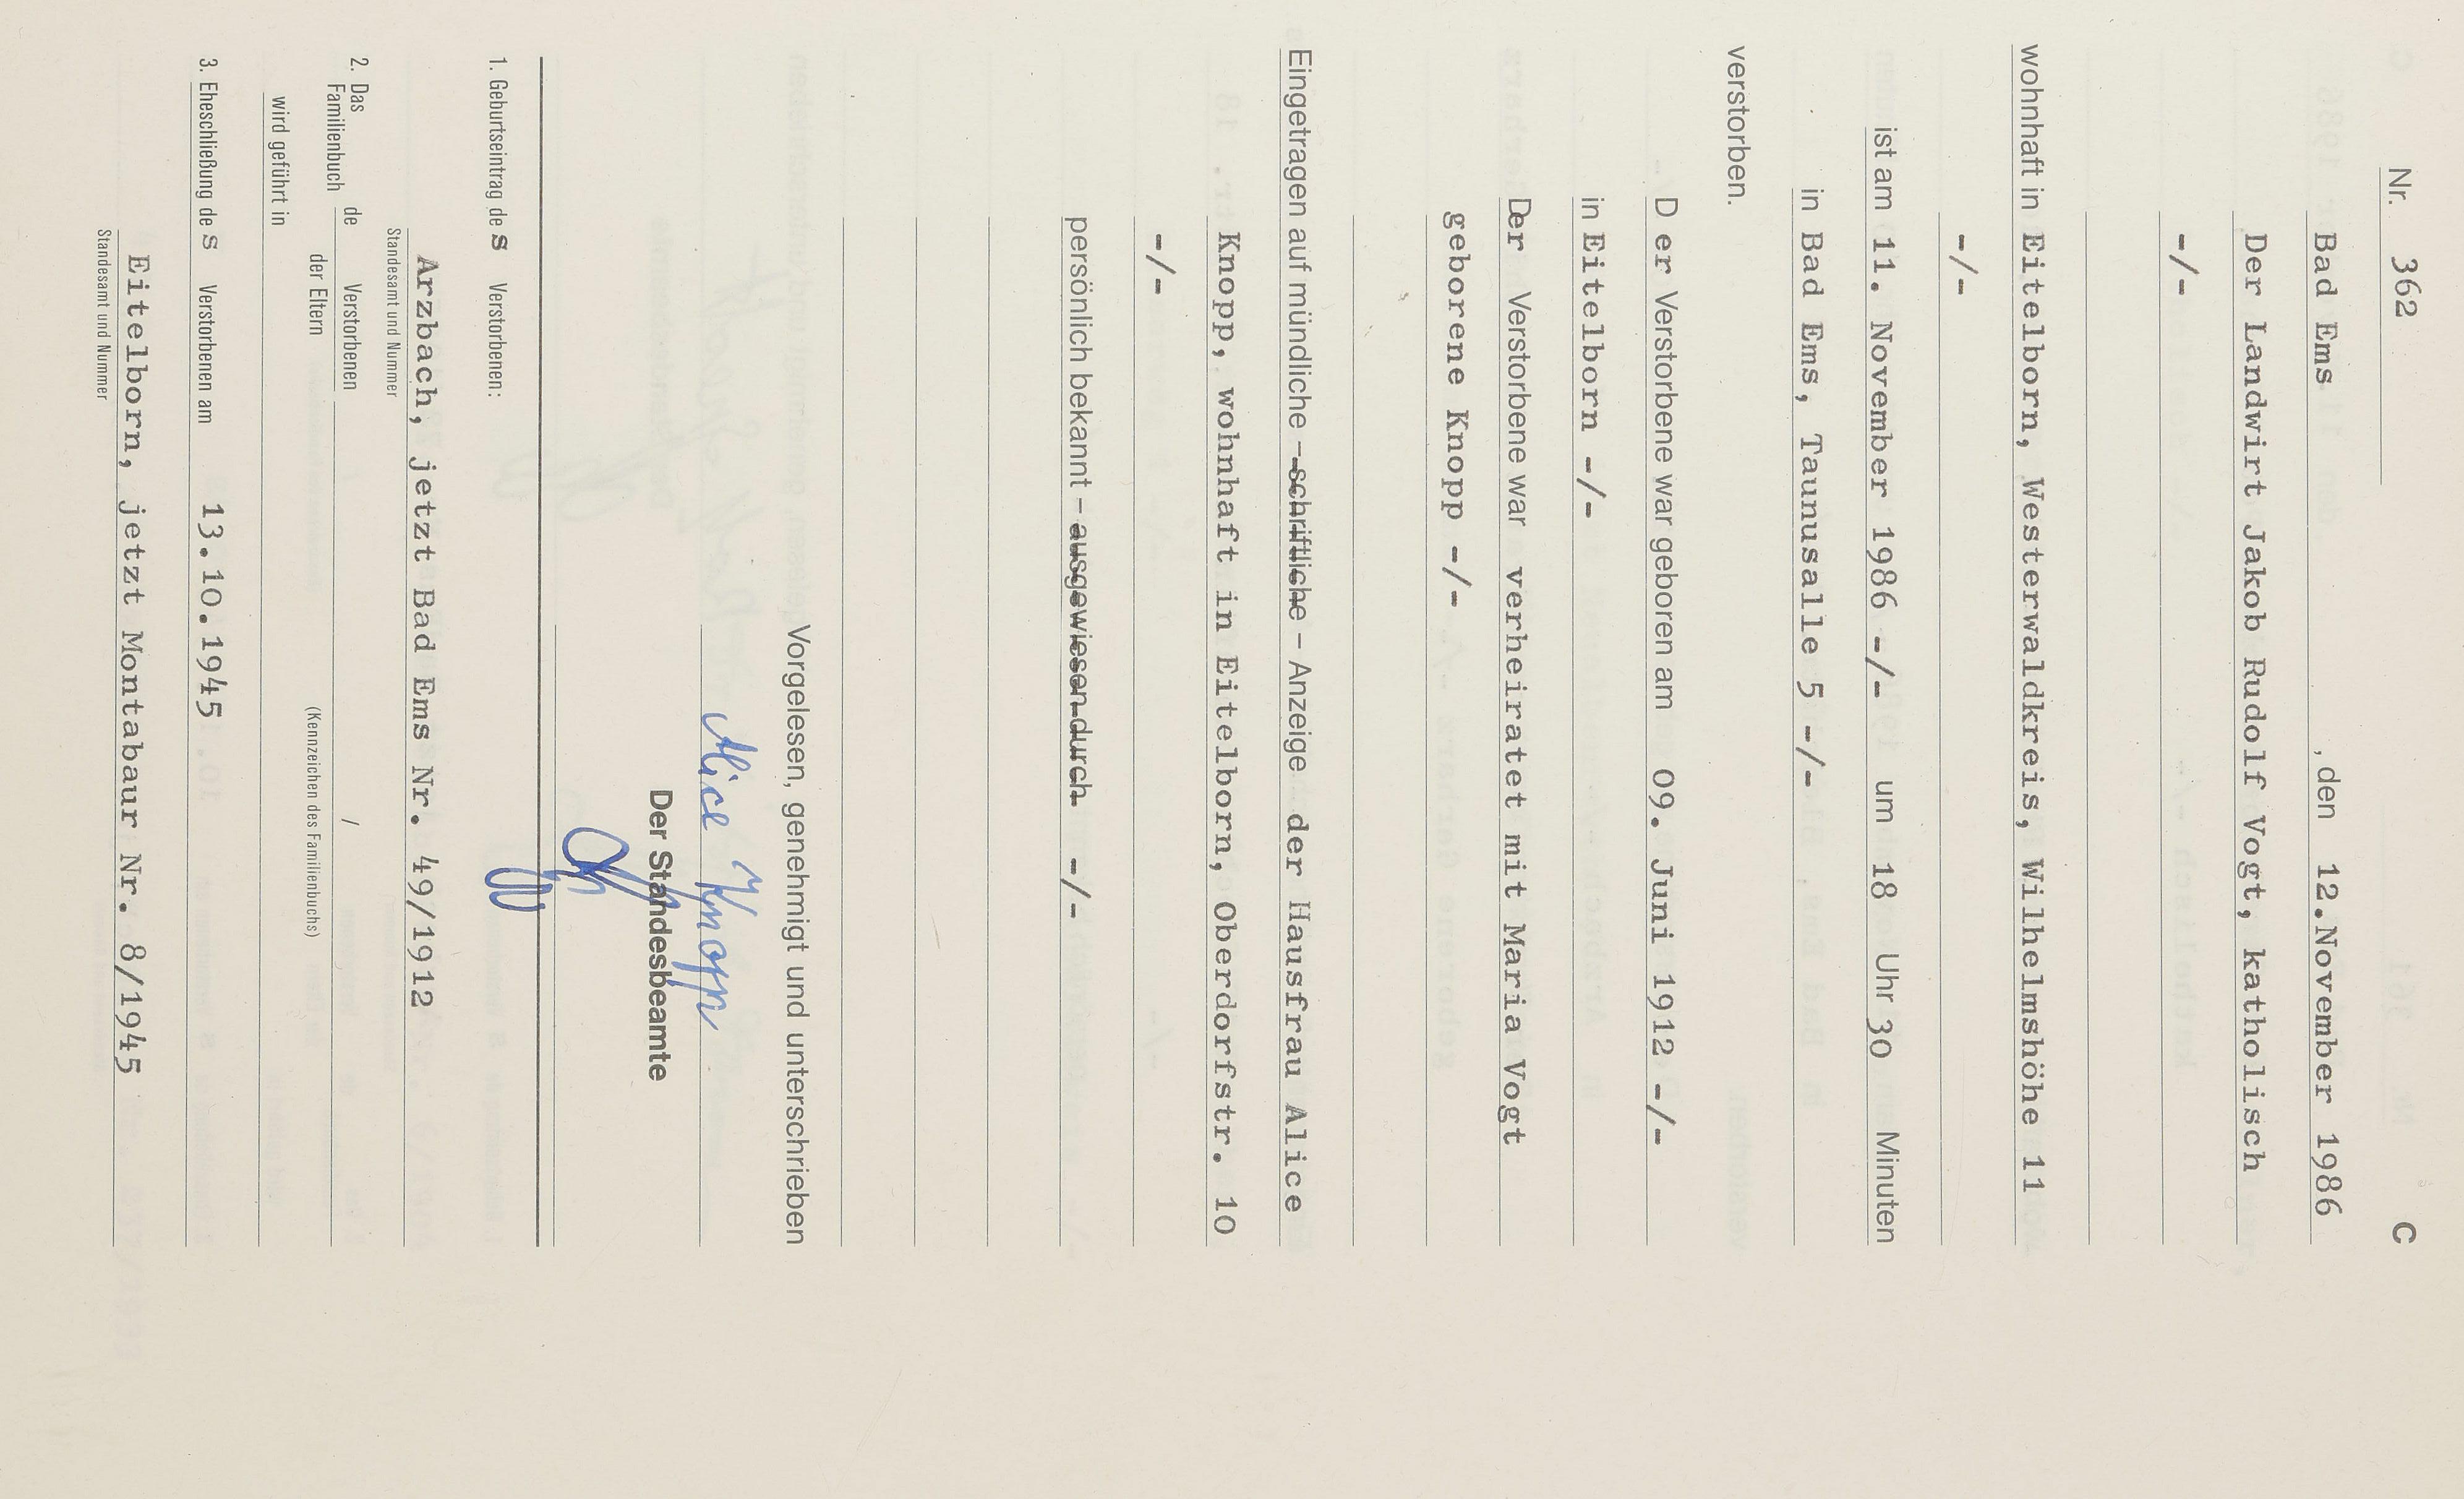 Nr. 362 C
Bad Ems , den 12.November 1986
Der Landwirt Jakob Rudolf Vogt, katholisch
-/-
wohnhaft in Eitelborn, Westerwaldkreis, Wilhelmshöhe 11
-/-
ist am 11. November 1986 -/- um 18 Uhr 30 Minuten
in Bad Ems, Taunusalle 5 -/-
verstorben.
D er Verstorbene war geboren am 09. Juni 1912 -/-
in Eitelborn -/-
Der Verstorbene war verheiratet mit Maria Vogt
geborene Knopp -/-
Eingetragen auf mündliche – schriftliche – Anzeige der Hausfrau Alice
Knopp, wohnhaft in Eitelborn, Oberdorfstr. 10
-/-
persönlich bekannt – ausgewiesen durch -/-
Vorgelesen, genehmigt und unterschrieben
Alice Knopp
Der Standesbeamte
1. Geburtseintrag des Verstorbenen:
Arzbach, jetzt Bad Ems Nr. 49/1912
Standesamt und Nummer
2. Das Familienbuch de Verstorbenen /
der Eltern (Kennzeichen des Familienbuchs)
wird geführt in
3. Eheschließung des Verstorbenen am 13.10.1945
Eitelborn, jetzt Montabaur Nr. 8/1945
Standesamt und Nummer